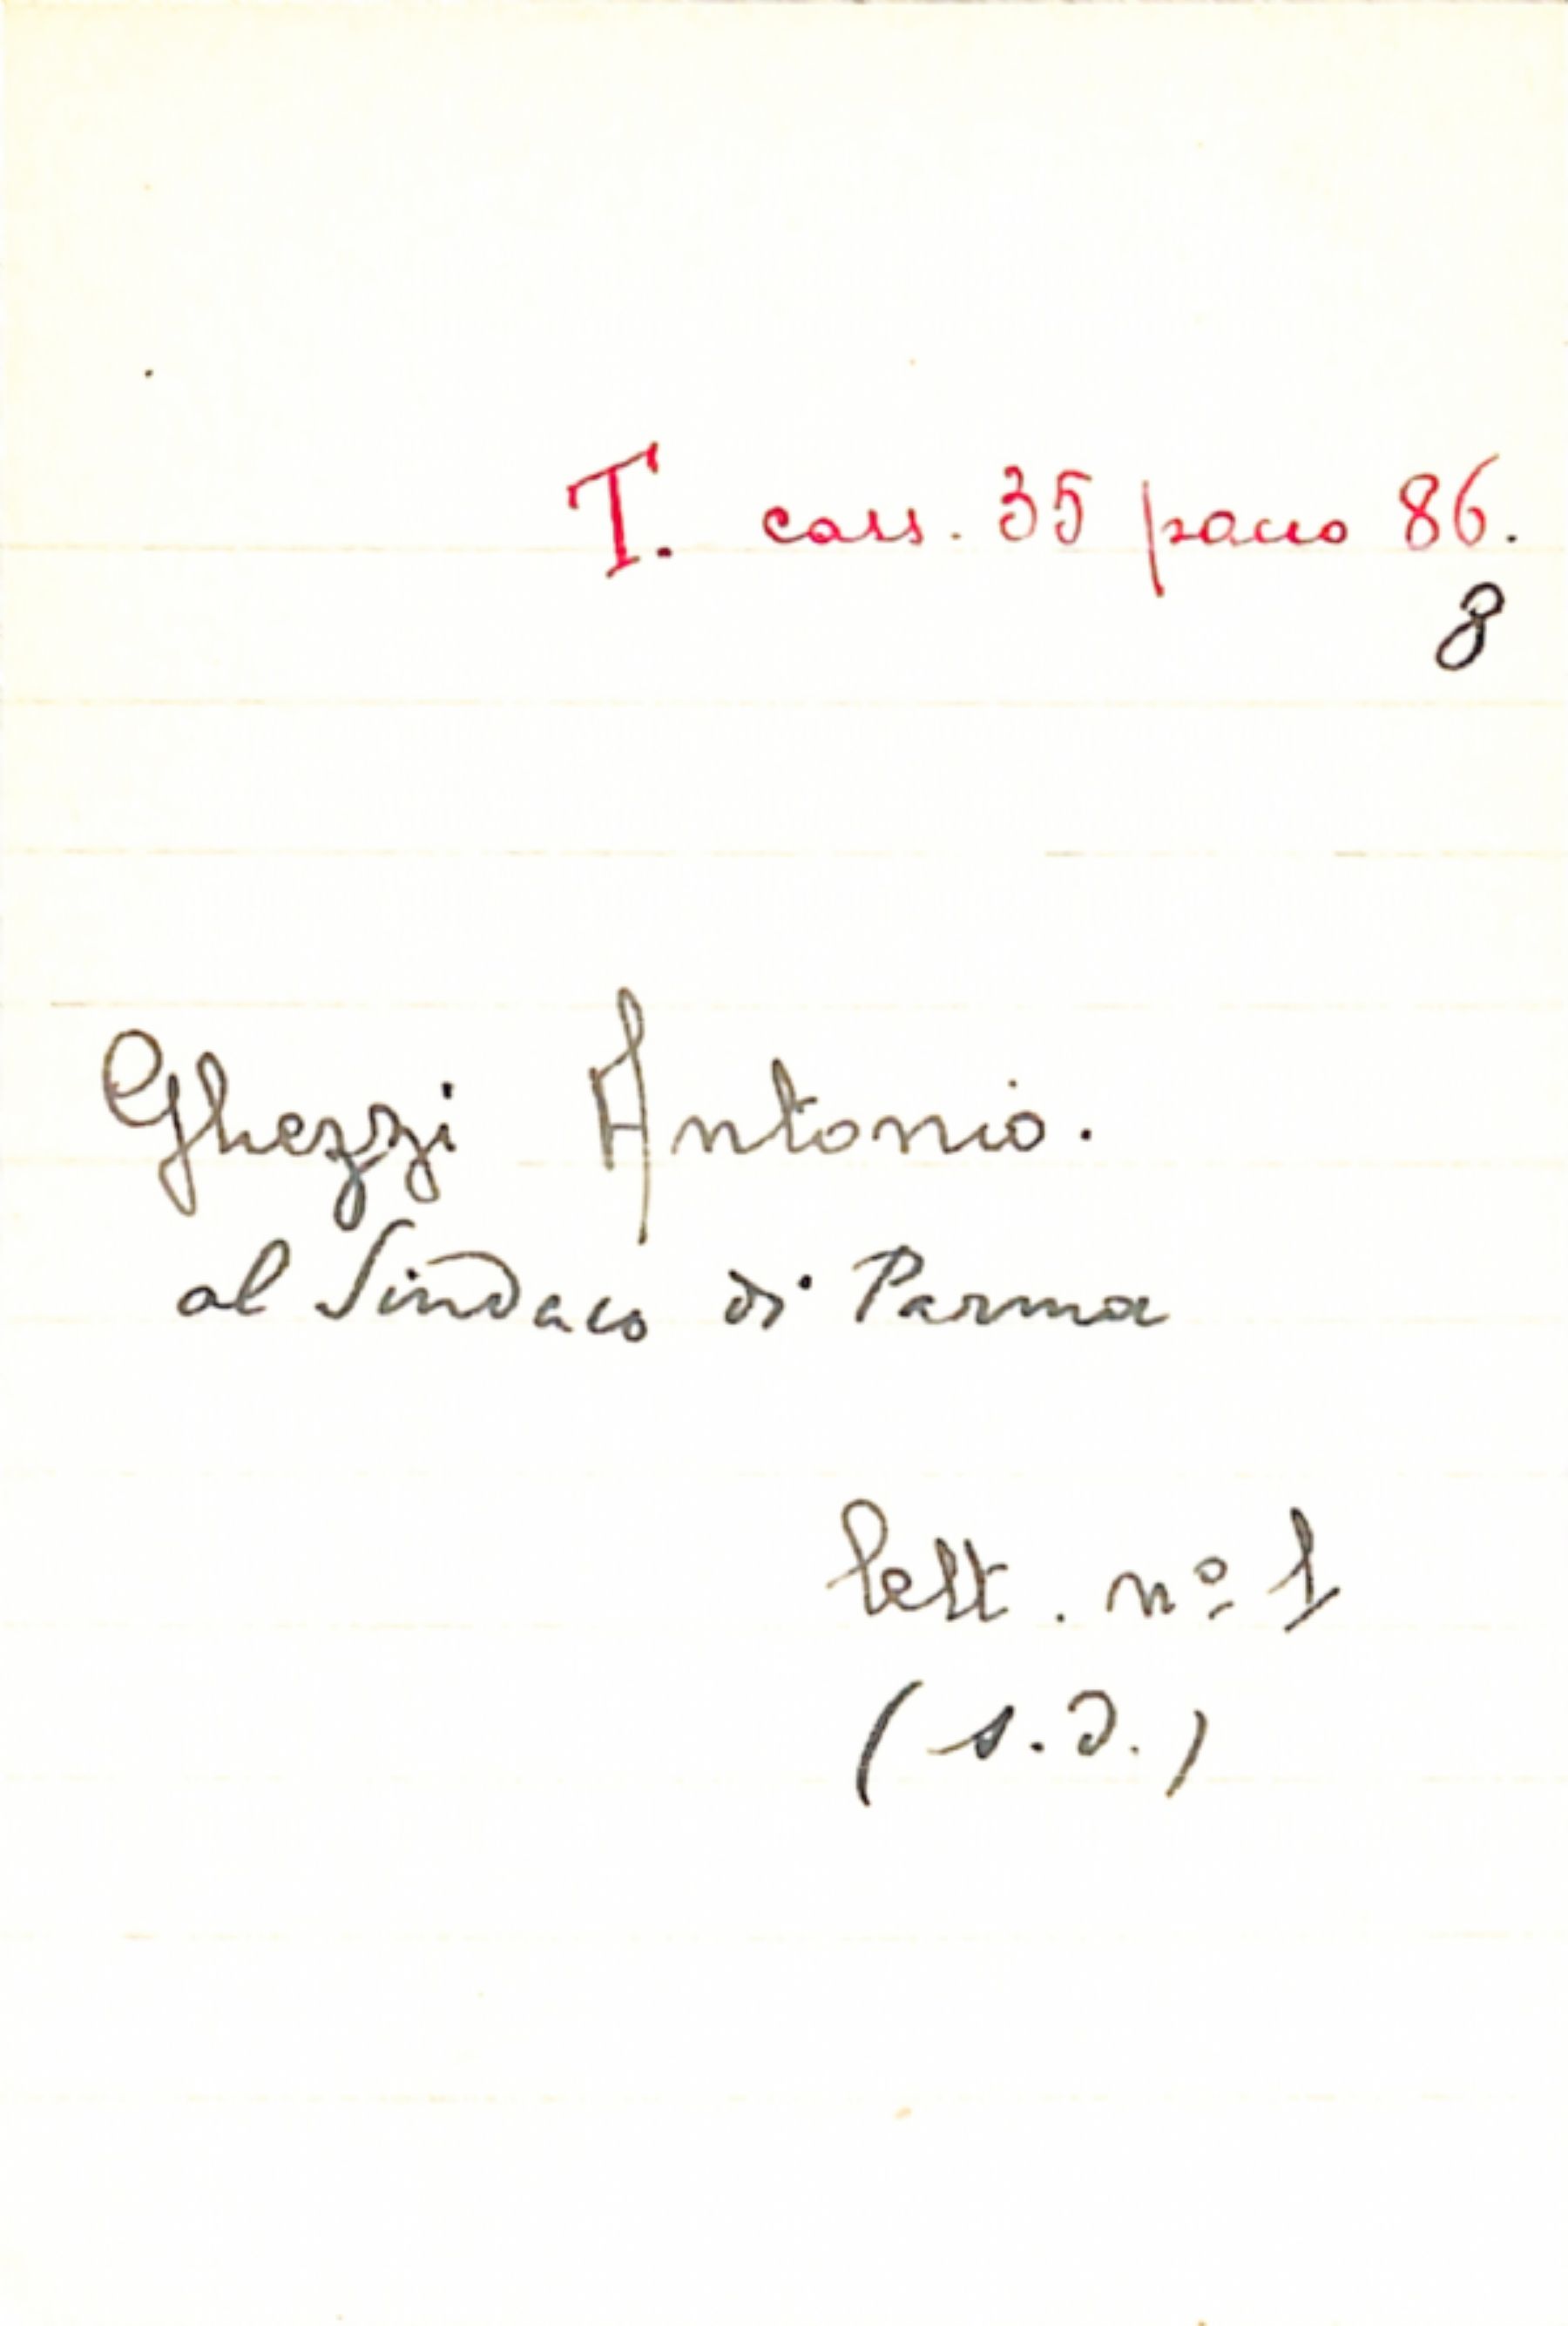 T. cass. 35 pacco 86.
8
Ghezzi Antonio.
al Sindaco di Parma
lett. nº 1
(s.d.)